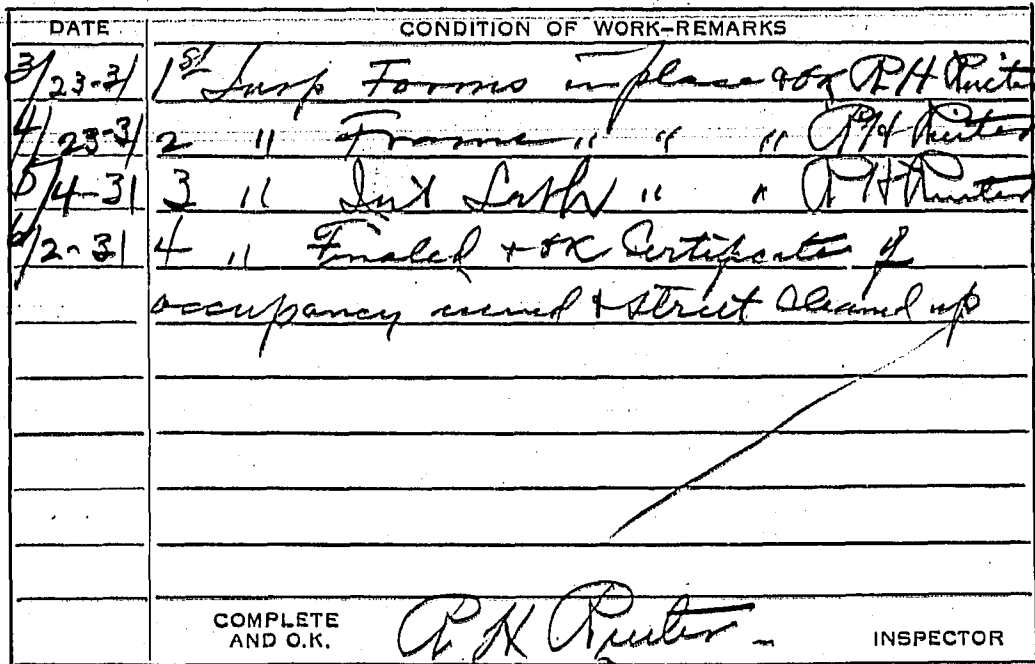 DATE CONDITION OF WORK-REMARKS
3/23-31 1st Insp Forms in place & OK R H Ruiter
4/23-31 2 " Frame " " " R H Ruiter
5/4-31 3 " Int Lath " " R H Ruiter
6/2-31 4 " Finaled & OK Certificate of
occupancy issued & street cleaned up
COMPLETE
AND O.K. R H Ruiter INSPECTOR